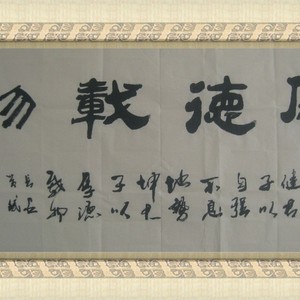 厚德載物
健君
子以
自强
不息
地勢
坤君
子以
厚德
載物